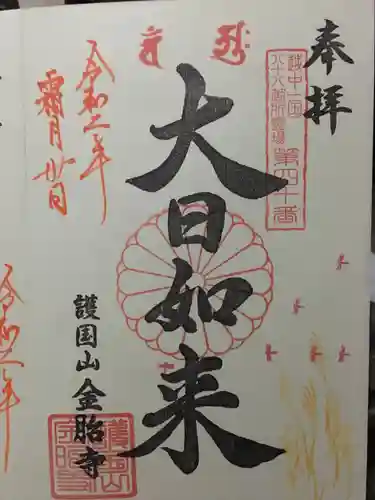 奉拝
越中一国
八十八個所霊場
第四十番
大日如来
護国山 金胎寺
令和二年
霜月廿日
令和二年